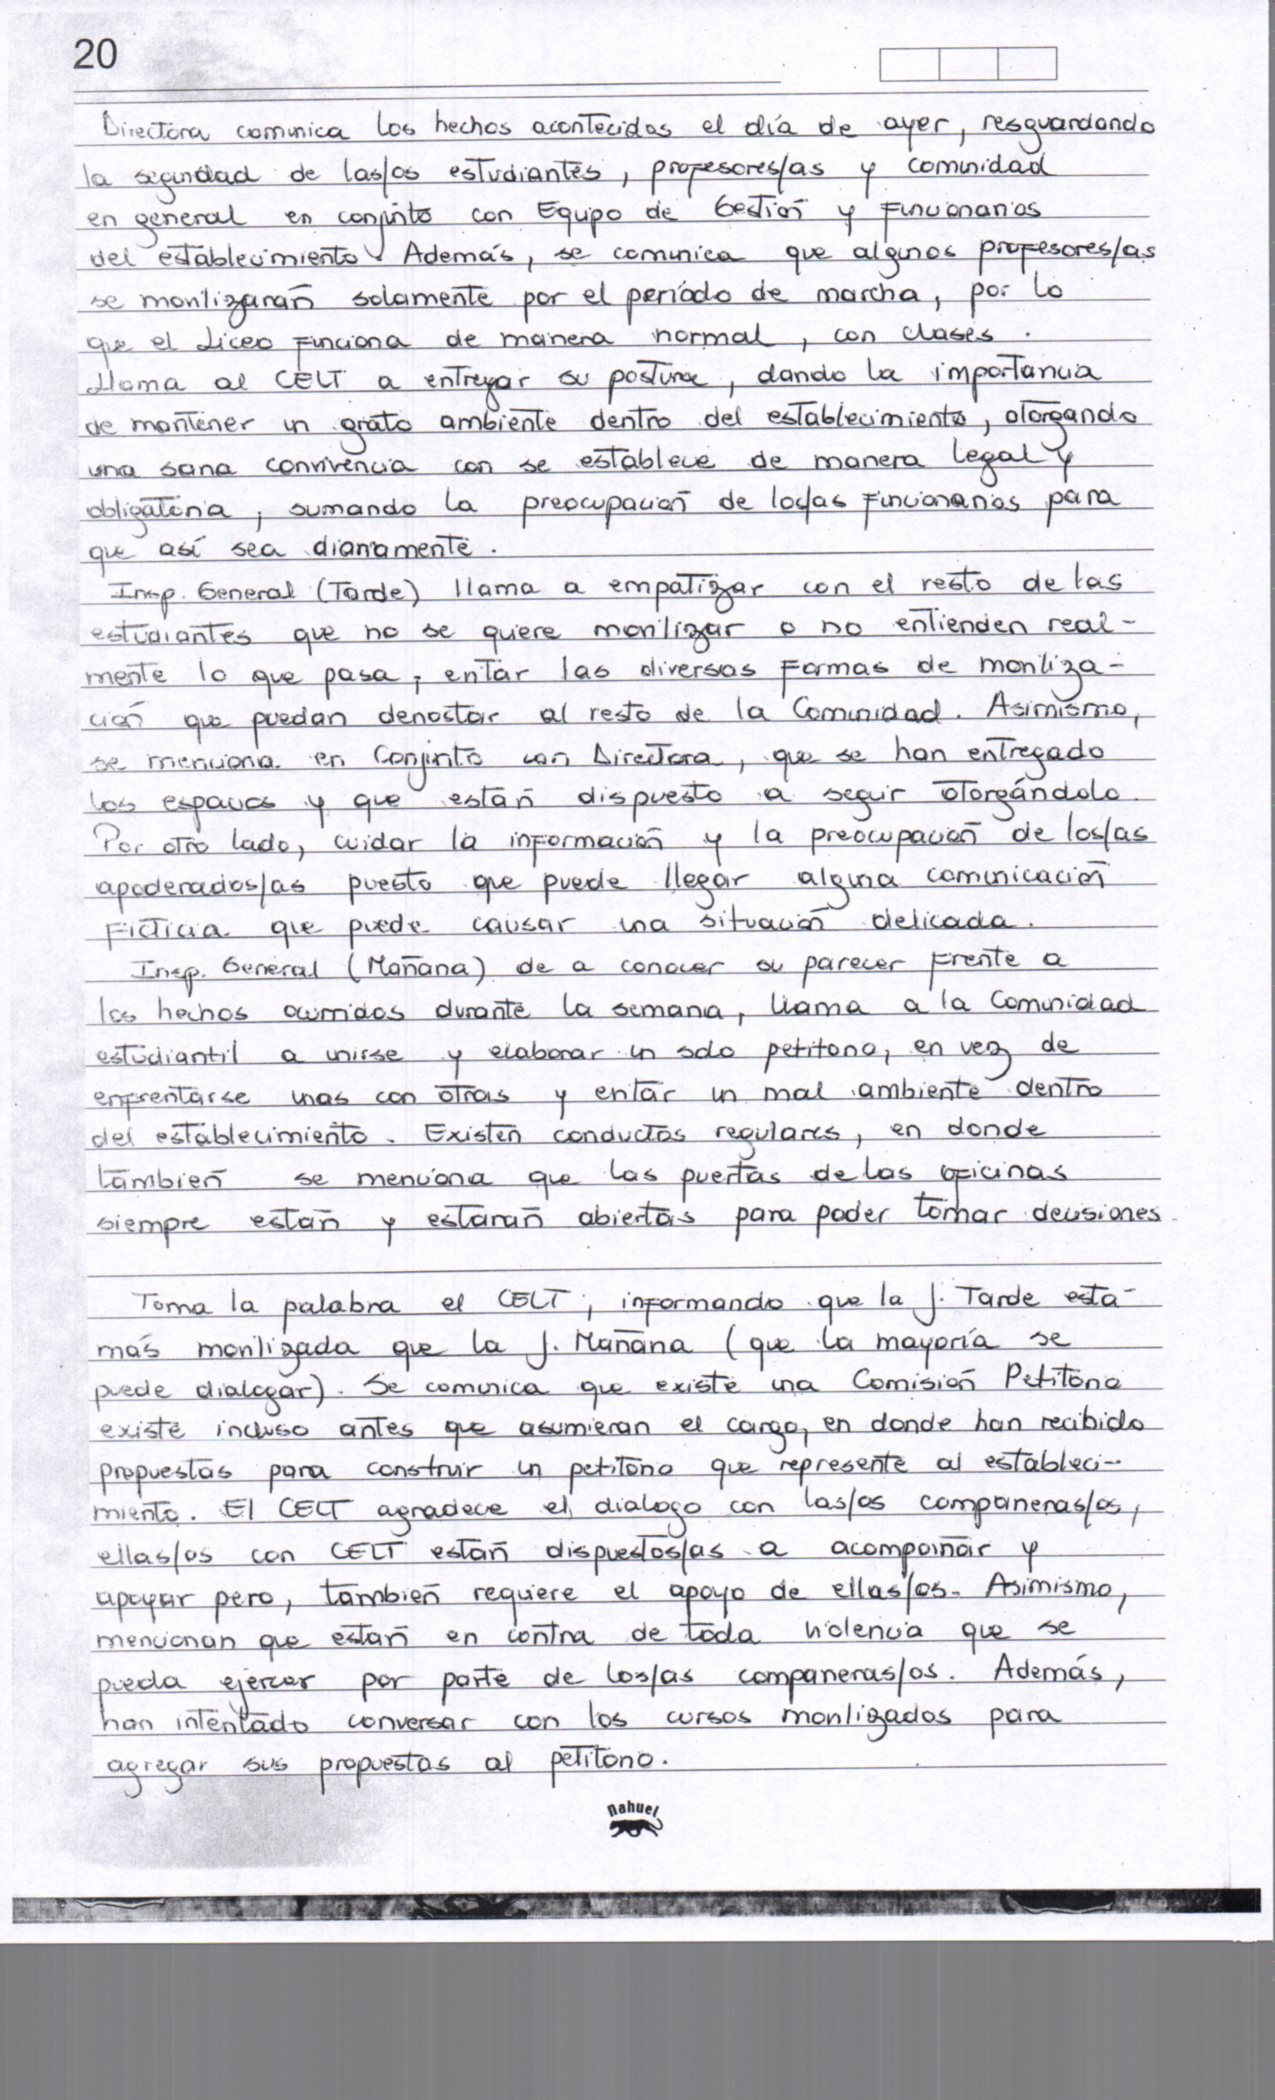 20
Directora comunica los hechos acontecidos el día de ayer, resguardando
la seguridad de las/os estudiantes, profesores/as y comunidad
en general en conjunto con Equipo de Gestión y Funcionarios
del establecimiento. Además, se comunica que algunos profesores/as
se movilizarán solamente por el período de marcha, por lo
que el Liceo funciona de manera normal, con clases.
Llama al CELT a entregar su postura, dando la importancia
de mantener un grato ambiente dentro del establecimiento, otorgando
una sana convivencia con se establece de manera legal y
obligatoria, sumando la preocupación de los/as funcionarios para
que así sea diariamente.
Insp. General (Tarde) llama a empatizar con el resto de las
estudiantes que no se quiere movilizar o no entienden real-
mente lo que pasa, evitar las diversas formas de moviliza-
ción que puedan denostar al resto de la Comunidad. Asimismo,
se menciona en Conjunto con Directora, que se han entregado
los espacios y que están dispuesto a seguir otorgándolo.
Por otro lado, cuidar la información y la preocupación de los/as
apoderados/as puesto que puede llegar alguna comunicación
ficticia que puede causar una situación delicada.
Insp. General (Mañana) de a conocer su parecer frente a
los hechos ocurridos durante la semana, llama a la Comunidad
estudiantil a unirse y elaborar un solo petitorio, en vez de
enfrentarse unas con otras y evitar un mal ambiente dentro
del establecimiento. Existen conductos regulares, en donde
también se menciona que las puertas de las oficinas
siempre están y estarán abiertas para poder tomar decisiones.
Toma la palabra el CELT, informando que la J. Tarde está
más movilizada que la J. Mañana (que la mayoría se
puede dialogar). Se comunica que existe una Comisión Petitorio
existe incluso antes que asumieran el cargo, en donde han recibido
propuestas para construir un petitorio que represente al estableci-
miento. El CELT agradece el dialogo con las/os companeras/os,
ellas/os con CELT están dispuestos/as a acompañar y
apoyar pero, también requiere el apoyo de ellas/os. Asimismo,
mencionan que están en contra de toda violencia que se
pueda ejercer por parte de los/as companeras/os. Además,
han intentado conversar con los cursos movilizados para
agregar sus propuestas al petitorio.
nahuel